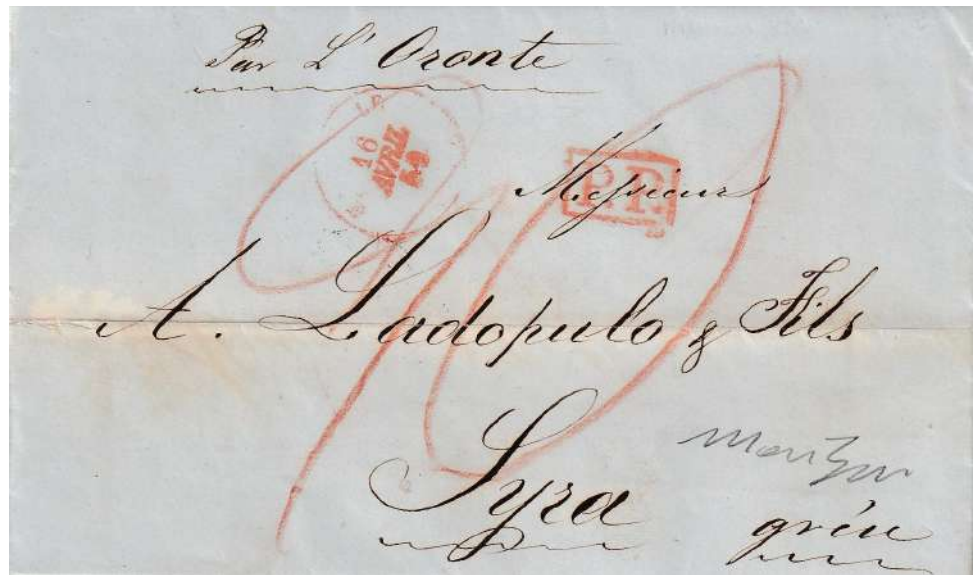 Par L' Oronte
16
AVRIL
49
Messieurs
P.P.
A. Ladopulo & Fils
Syra
grèce